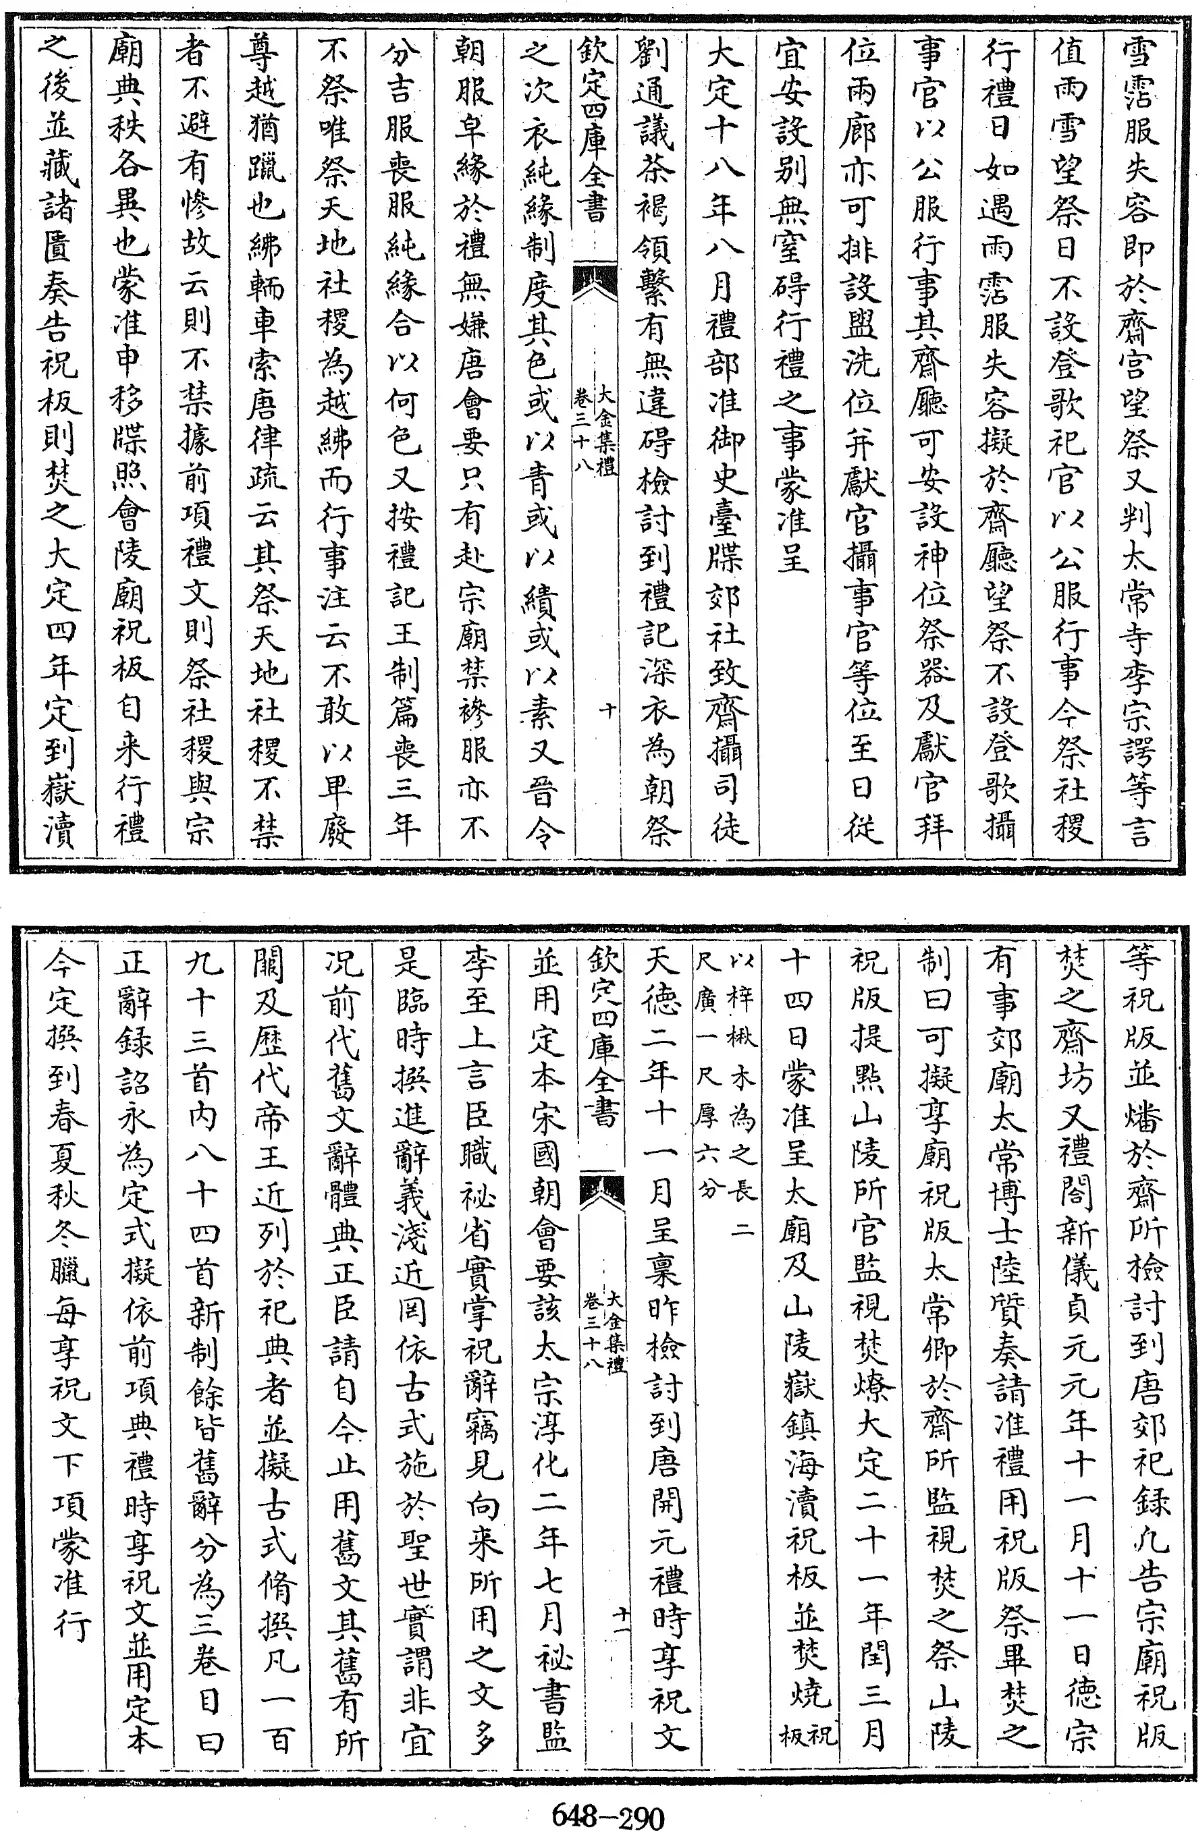 雪霑服失容即於齋宫望祭又判太常寺李宗諤等言
值雨雪望祭日不設登歌祀官以公服行事今祭社稷
行禮日如遇雨霑服失容擬於齋廳望祭不設登歌攝
事官以公服行事其齋廳可安設神位祭器及獻官拜
位兩廊亦可排設盥洗位并獻官攝事官等位至日從
宜安設别無窒碍行禮之事蒙准呈
大定十八年八月禮部准御史臺牒郊社致齋攝司徒
劉通議茶褐領繫有無違碍檢討到禮記深衣為朝祭
欽定四庫全書
大金集禮
卷三十八
十
之次衣純緣制度其色或以青或以繢或以素又晉令
朝服皁緣於禮無嫌唐會要只有赴宗廟禁襂服亦不
分吉服喪服純緣合以何色又按禮記王制篇喪三年
不祭唯祭天地社稷為越紼而行事注云不敢以卑廢
尊越猶躐也紼輀車索唐律疏云其祭天地社稷不禁
者不避有慘故云則不禁據前項禮文則祭社稷與宗
廟典秩各異也蒙准申移牒照會陵廟祝板自来行禮
之後並藏諸匱奏告祝板則焚之大定四年定到嶽瀆
等祝版並燔於齋所檢討到唐郊祀録凡告宗廟祝版
焚之齋坊又禮閣新儀貞元元年十一月十一日德宗
有事郊廟太常博士陸質奏請准禮用祝版祭畢焚之
制曰可擬享廟祝版太常卿於齋所監視焚之祭山陵
祝版提點山陵所官監視焚燎大定二十一年閏三月
十四日蒙准呈太廟及山陵嶽鎮海瀆祝板並焚燒祝板
以梓楸木為之長二
尺廣一尺厚六分
天德二年十一月呈稟昨檢討到唐開元禮時享祝文
欽定四庫全書
大金集禮
卷三十八
十一
並用定本宋國朝會要該太宗淳化二年七月祕書監
李至上言臣職祕省實掌祝辭竊見向来所用之文多
是臨時撰進辭義淺近罔依古式施於聖世實謂非宜
况前代舊文辭體典正臣請自今止用舊文其舊有所
闕及歷代帝王近列於祀典者並擬古式脩撰凡一百
九十三首内八十四首新制餘皆舊辭分為三卷目曰
正辭録詔永為定式擬依前項典禮時享祝文並用定本
今定撰到春夏秋冬臘每享祝文下項蒙准行
648-290